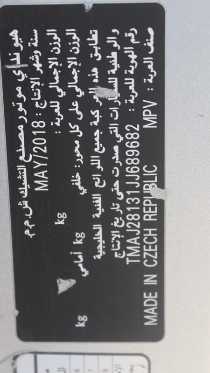 هيونداي موتور مصنع التشيك ش.م.م
سنة وشهر الانتاج : MAY/2018
الوزن الإجمالي للعربة : kg
الوزن الإجمالي على كل محور: خلفي kg أمامي kg
تطابق هذه المركبة جميع اللوائح الفنية الخليجية
والوطنية للسيارات التي صدرت حتى تاريخ الانتاج
رقم الهوية للعربة : TMAJ28131JJ689682
صنف العربة : MPV MADE IN CZECH REPUBLIC